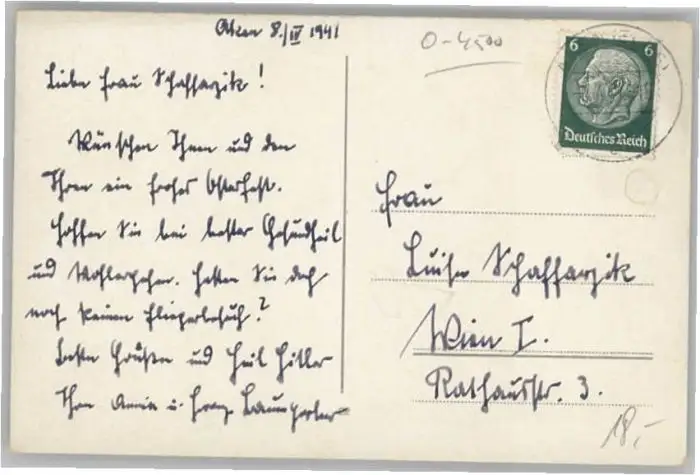 Aken 8./IV 1941
Liebe Frau Schaffarzik!
Wünschen Ihnen und den
Ihren ein frohes Osterfest.
Hoffen Sie bei bester Gesundheit
und Wohlergehen. Hatten Sie doch
noch keinen Fliegerbesuch?
Beste Grüßen und Heil Hitler
Ihre Anna u. Franz
0-4500
6 6
Deutsches Reich
Frau
Luise Schaffarzik
Wien I.
Rathausstr. 3.
18,-